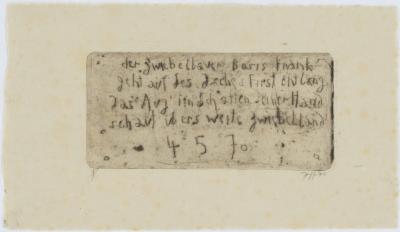 der zwiebelbauer Boris Frank
geht auf des Daches First entlang
das Aug im Schatten seiner Hand
schaut übers weite Zwiebelland
4570